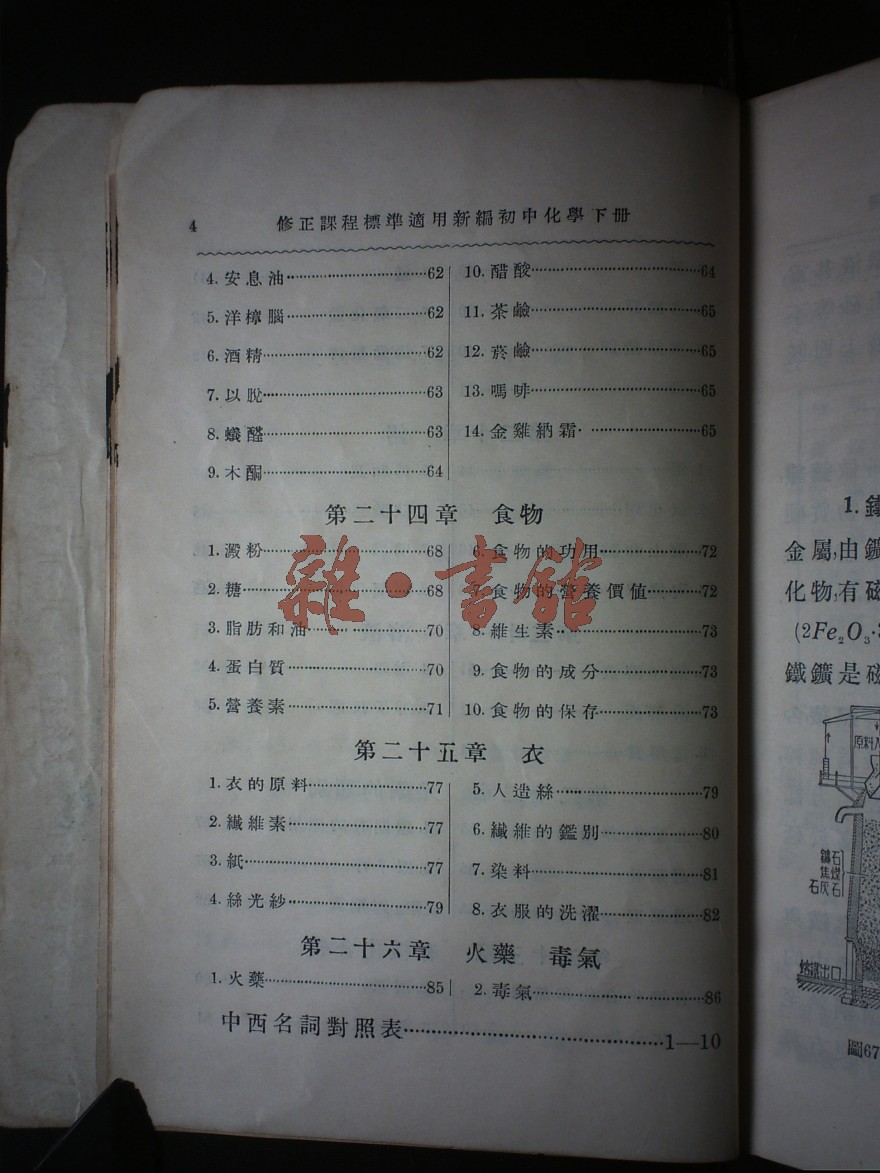 4 修正課程標準適用新編初中化學下册
4. 安息油 62
5. 洋樟腦 62
6. 酒精 62
7. 以脫 63
8. 蟻醛 63
9. 木酮 64
10. 醋酸 64
11. 茶鹼 65
12. 菸鹼 65
13. 嗎啡 65
14. 金雞納霜 65
第二十四章 食物
1. 澱粉 68
2. 糖 68
3. 脂肪和油 70
4. 蛋白質 70
5. 營養素 71
6. 食物的功用 72
7. 食物的營養價值 72
8. 維生素 73
9. 食物的成分 73
10. 食物的保存 73
第二十五章 衣
1. 衣的原料 77
2. 纖維素 77
3. 紙 77
4. 絲光紗 79
5. 人造絲 79
6. 纖維的鑑別 80
7. 染料 81
8. 衣服的洗濯 82
第二十六章 火藥 毒氣
1. 火藥 85
2. 毒氣 86
中西名詞對照表 1—10
雜·書館
1. 鐵
金屬,由鑛
化物,有磁
(2Fe₂O₃·
鐵鑛是磁
原料入
鑛石
焦煤
石灰石
熔鐵出口
圖67